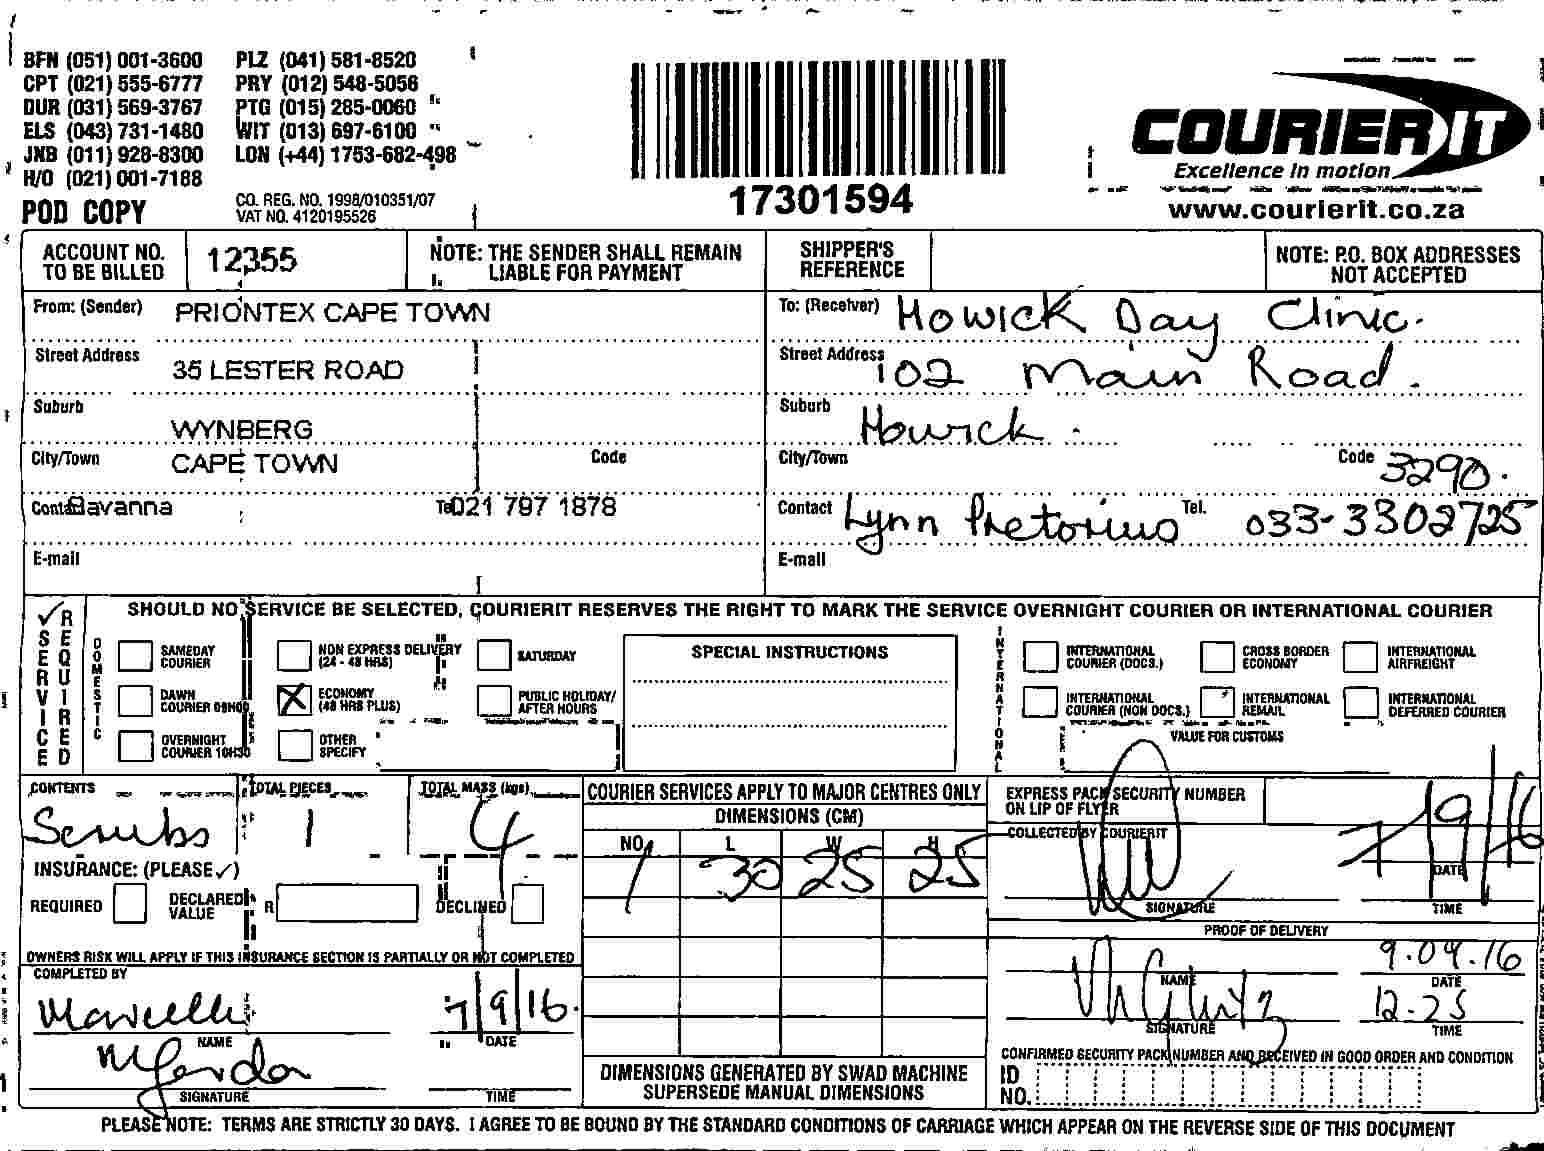 BFN (051) 001-3600 PLZ (041) 581-8520
CPT (021) 555-6777 PRY (012) 548-5056
DUR (031) 569-3767 PTG (015) 285-0060
ELS (043) 731-1480 WIT (013) 697-6100
JNB (011) 928-8300 LON (+44) 1753-682-498
H/O (021) 001-7188
POD COPY
CO. REG. NO. 1998/010351/07
VAT NO. 4120195526
17301594
COURIER IT
Excellence in motion
www.courierit.co.za
ACCOUNT NO. TO BE BILLED 12355
NOTE: THE SENDER SHALL REMAIN LIABLE FOR PAYMENT
SHIPPER'S REFERENCE
NOTE: P.O. BOX ADDRESSES NOT ACCEPTED
From: (Sender) PRIONTEX CAPE TOWN
Street Address 35 LESTER ROAD
Suburb WYNBERG
City/Town CAPE TOWN Code
Contact Savanna Tel. 021 797 1878
E-mail
To: (Receiver) Howick Day Clinic.
Street Address 102 Main Road.
Suburb Howick.
City/Town Code 3290.
Contact Lynn Pretorius Tel. 033-3302725
E-mail
✓ SERVICE REQUIRED
SHOULD NO SERVICE BE SELECTED, COURIERIT RESERVES THE RIGHT TO MARK THE SERVICE OVERNIGHT COURIER OR INTERNATIONAL COURIER
DOMESTIC
SAMEDAY COURIER
NON EXPRESS DELIVERY (24 - 48 HRS)
SATURDAY
DAWN COURIER 09H00
X ECONOMY (48 HRS PLUS)
PUBLIC HOLIDAY/ AFTER HOURS
OVERNIGHT COURIER 10H30
OTHER SPECIFY
SPECIAL INSTRUCTIONS
INTERNATIONAL
INTERNATIONAL COURIER (DOCS.)
CROSS BORDER ECONOMY
INTERNATIONAL AIRFREIGHT
INTERNATIONAL COURIER (NON DOCS.)
INTERNATIONAL REMAIL
INTERNATIONAL DEFERRED COURIER
VALUE FOR CUSTOMS
CONTENTS Scrubs
TOTAL PIECES 1
TOTAL MASS (kgs) 4
INSURANCE: (PLEASE ✓)
REQUIRED
DECLARED VALUE R
DECLINED
OWNERS RISK WILL APPLY IF THIS INSURANCE SECTION IS PARTIALLY OR NOT COMPLETED
COMPLETED BY
Marcelle 7/9/16.
NAME DATE
SIGNATURE TIME
COURIER SERVICES APPLY TO MAJOR CENTRES ONLY
DIMENSIONS (CM)
NO. L W H
1 30 25 25
DIMENSIONS GENERATED BY SWAD MACHINE SUPERSEDE MANUAL DIMENSIONS
EXPRESS PACK SECURITY NUMBER ON LIP OF FLYER
COLLECTED BY COURIERIT
7/9/16
DATE
SIGNATURE TIME
PROOF OF DELIVERY
9.09.16
NAME DATE
12-25
SIGNATURE TIME
CONFIRMED SECURITY PACK NUMBER AND RECEIVED IN GOOD ORDER AND CONDITION
ID NO.
PLEASE NOTE: TERMS ARE STRICTLY 30 DAYS. I AGREE TO BE BOUND BY THE STANDARD CONDITIONS OF CARRIAGE WHICH APPEAR ON THE REVERSE SIDE OF THIS DOCUMENT